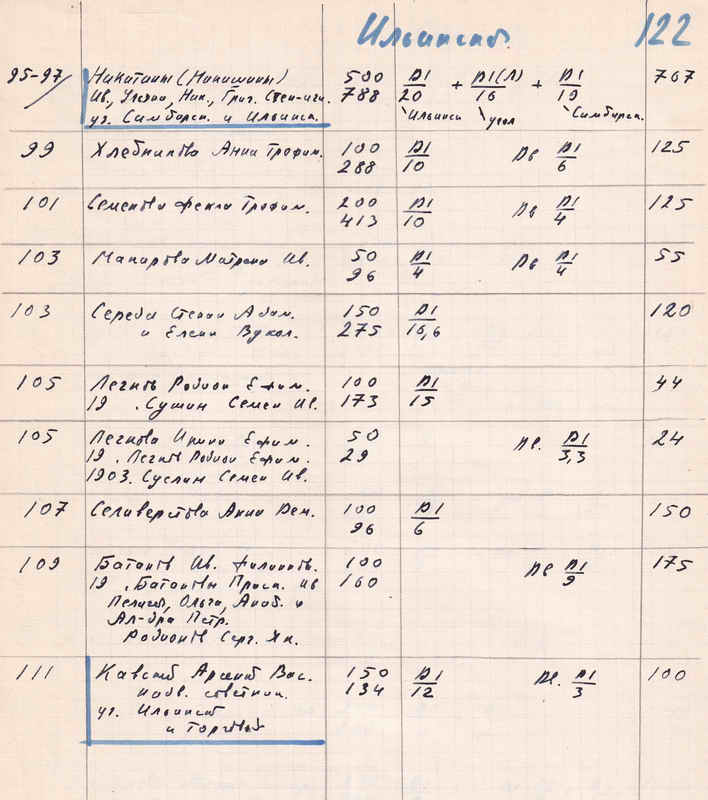 Ильинская 122
95-97 Никитины (Микишины) 500 Д1/20 + Д1(Л)/16 + Д1/19 767
Ив., Ник., Григ. 788 Ильинск угол Симбирск.
уг. Симбирск. и Ильинск.
99 Хлебникова Анна Трофим. 100 Д1/10 Дв Д1/6 125
288
101 Семенова Фекла Трофим. 200 Д1/10 Дв Д1/4 125
413
103 Макарова Матрена Ив. 50 Д1/4 Дв Д1/4 55
96
103 Середа Степан Адам. 150 Д1/16,6 120
и Елена Вукол. 275
105 Легнов Родион Ефим. 100 Д1/15 44
19 . Сушин Семен Ив. 173
105 Легнова Ирина Ефим. 50 Дв. Д1/3,3 24
19 . Легнов Родион Ефим. 29
1903. Суслин Семен Ив.
107 Селиверстова Анна Дем. 100 Д1/6 150
96
109 Батанов Ив. Филиппов. 100 Дв Д1/9 175
19 . Батановы Праск. Ив 160
Пелагея, Ольга, и
Ал-дра Петр.
Родионов Серг. Як.
111 Арсений Вас. 150 Д1/12 Дв. Д1/3 100
надв. советник. 134
уг. Ильинской
и Торговой